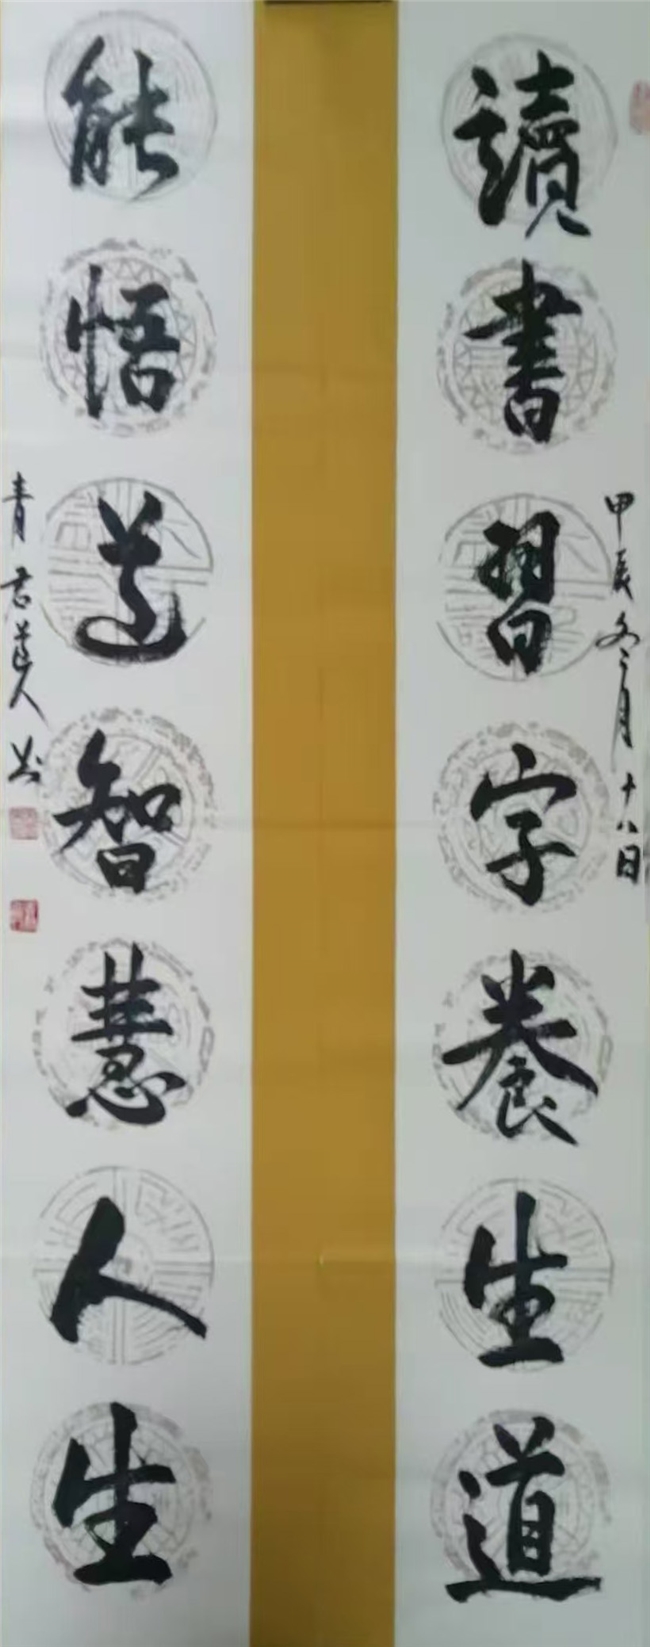 讀書習字養生道
甲辰冬二月十八日
能悟道智慧人生
青君道人书